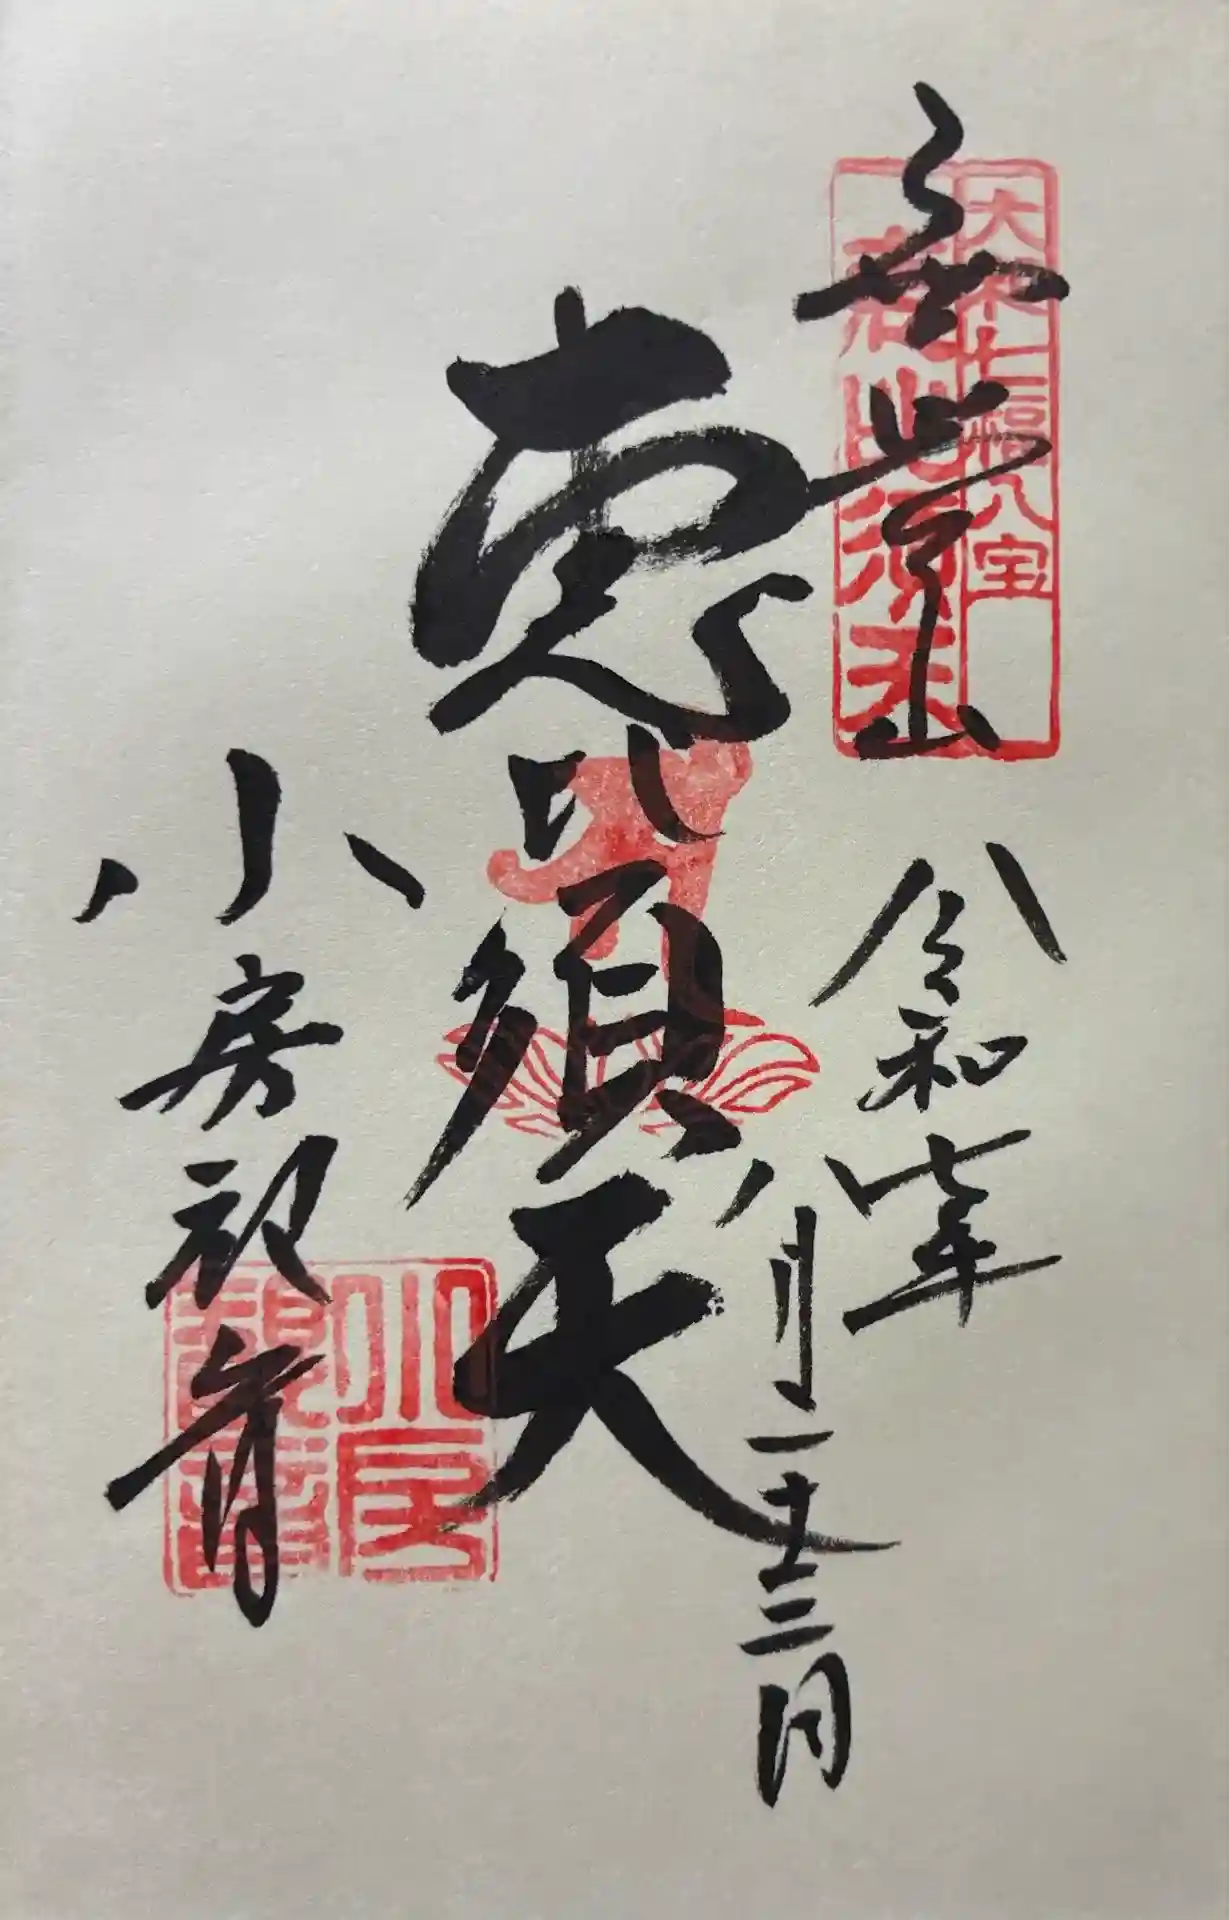 大和七福八宝
恵比須天
令和七年
八月二十三日
恵比須天
小房観音
小房
観音